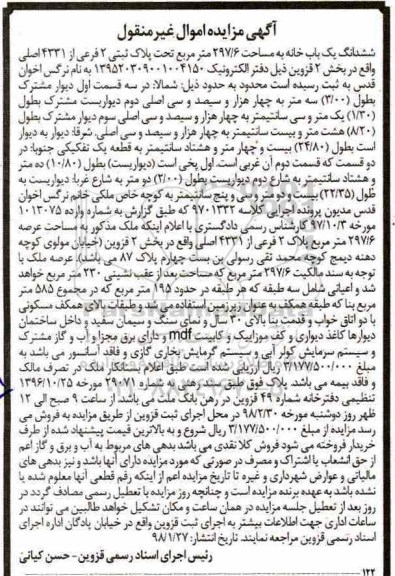 آگهی مزایده اموال غیر منقول
ششدانگ یک باب خانه به مساحت ۲۹۷/۶ متر مربع تحت پلاک ثبتی ۲ فرعی از ۴۳۳۱ اصلی
واقع در بخش ۲ قزوین ذیل دفتر الکترونیک ۱۳۹۵۲۰۳۰۹۰۰۱۰۰۴۱۵۰ به نام نرگس اخوان
قدس به ثبت رسیده است محدود به حدود ذیل: شمالا: در سه قسمت اول دیوار مشترک
بطول (۳/۰۰) سه متر به چهار هزار و سیصد و سی اصلی دوم دیواریست مشترک بطول
(۱/۳۰) یک متر و سی سانتیمتر به چهار هزار و سیصد و سی اصلی سوم دیوار مشترک بطول
(۸/۲۰) هشت متر و بیست سانتیمتر به چهار هزار و سیصد و سی اصلی. شرقا: دیوار به دیوار
است بطول (۲۴/۸۰) بیست و چهار متر و هشتاد سانتیمتر به قطعه یک تفکیکی جنوبا: در
دو قسمت که قسمت دوم آن غربی است. اول پخی است (دیواریست) بطول (۱۰/۸۰) ده متر
و هشتاد سانتیمتر به شارع دوم دیواریست بطول (۲/۰۰) دو متر به شارع غربا: دیواریست به
طول (۲۲/۳۵) بیست و دو متر و سی و پنج سانتیمتر به کوچه خاص ملکی خانم نرگس اخوان
قدس مدیون پرونده اجرایی کلاسه ۹۷۰۱۳۳۲ که طبق گزارش به شماره وارده ۱۰۱۳۰۷۵
مورخه ۹۷/۱۰/۳ کارشناس رسمی دادگستری با اعلام اینکه ملک مذکور با مساحت عرصه
۲۹۷/۶ متر مربع پلاک ۲ فرعی از ۴۳۳۱ اصلی واقع در بخش ۲ قزوین (خیابان مولوی کوچه
دهنه دیمج کوچه محمد تقی رسولی بن بست چهارم پلاک ۸۷ می باشد). عرصه ملک با
توجه به سند مالکیت ۲۹۷/۶ متر مربع که مساحت بعد از عقب نشینی ۲۳۰ متر مربع خواهد
شد و اعیانی شامل سه طبقه که هر طبقه در حدود ۱۹۵ متر مربع که در مجموع ۵۸۵ متر
مربع بنا که طبقه همکف به عنوان زیرزمین استفاده می شد و طبقات بالای همکف مسکونی
با دو اتاق خواب و قدمت بنا بالای ۳۰ سال و نمای سنگ و سیمان سفید و داخل ساختمان
دیوارها کاغذ دیواری و کف موزاییک و کابینت mdf و دارای برق مجزا و آب و گاز مشترک
و سیستم سرمایش کولر آبی و سیستم گرمایش بخاری گازی و فاقد آسانسور می باشد به
مبلغ ۳/۱۷۷/۵۰۰/۰۰۰ ریال ارزیابی شده است طبق اعلام بستانکار ملک در تصرف مالک
و فاقد بیمه می باشد. پلاک فوق طبق سند رهنی به شماره ۲۹۰۷۱ مورخه ۱۳۹۶/۱۰/۲۵
تنظیمی دفترخانه شماره ۴۹ قزوین در رهن بانک ملت می باشد. از ساعت ۹ صبح الی ۱۲
ظهر روز دوشنبه مورخه ۹۸/۲/۳۰ در محل اجرای ثبت قزوین از طریق مزایده به فروش می
رسد مزایده از مبلغ ۳/۱۷۷/۵۰۰/۰۰۰ ریال شروع و به بالاترین قیمت پیشنهاد شده از طرف
خریدار فروخته می شود فروش کلا نقدی می باشد بدهی های مربوط به آب و برق و گاز اعم
از حق انشعاب یا اشتراک و مصرف در صورتی که مورد مزایده دارای آنها باشد و نیز بدهی های
مالیاتی و عوارض شهرداری و غیره تا تاریخ مزایده اعم از اینکه رقم قطعی آنها معلوم شده یا
نشده باشد به عهده برنده مزایده است و چنانچه روز مزایده با تعطیل رسمی مصادف گردد در
روز بعد از تعطیل جلسه مزایده در همان ساعت و مکان تشکیل خواهد طالبین می توانند در
ساعات اداری جهت اطلاعات بیشتر به اجرای ثبت قزوین واقع در خیابان پادگان اداره اجرای
اسناد رسمی قزوین مراجعه نمایند. تاریخ انتشار: ۹۸/۱/۲۷
رئیس اجرای اسناد رسمی قزوین - حسن کیانی
۱۲۲